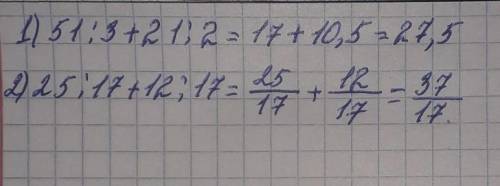 1) 51:3+21:2=17+10,5=27,5
2) 25:17+12:17=25/17+12/17=37/17.